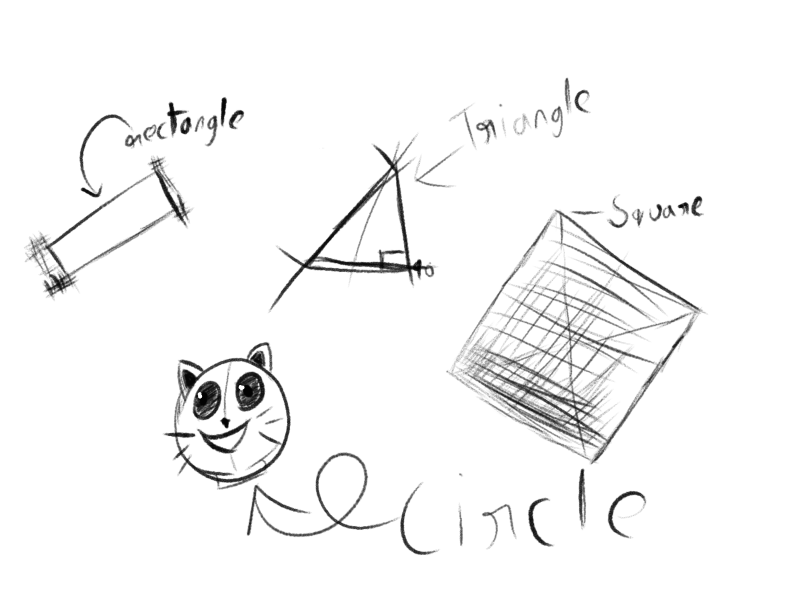 rectangle
Triangle
Square
Circle